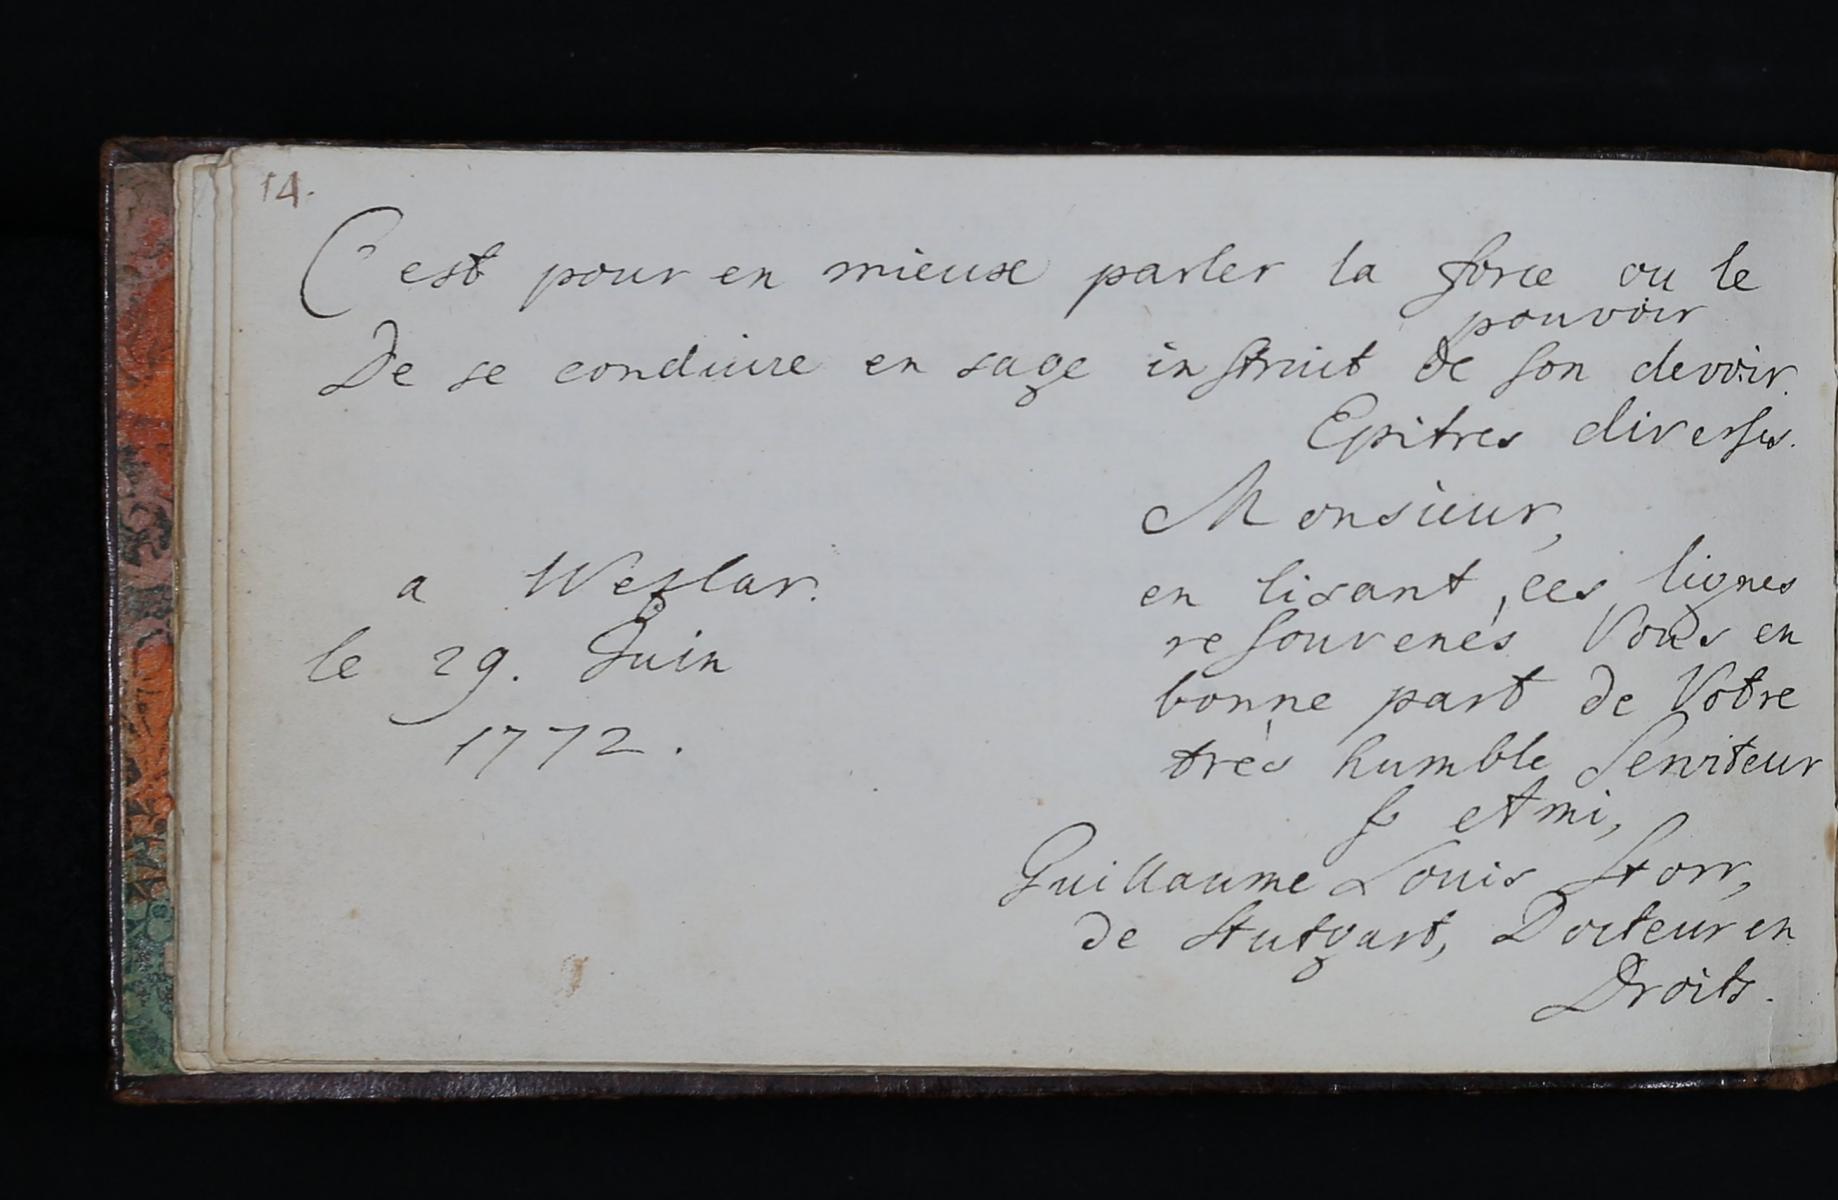 14.
C'est pour en mieux parler la force ou le
pouvoir
De se conduire en sage instruit de son devoir.
Epitres diverses.
Monsieur,
en lisant ces lignes
resouvenés Vous en
bonne part de Votre
très humble Serviteur
& Ami,
Guillaume Louis Storr,
de Stutgart, Docteur en
Droits.
a Wezlar.
le 29. Juin
1772.